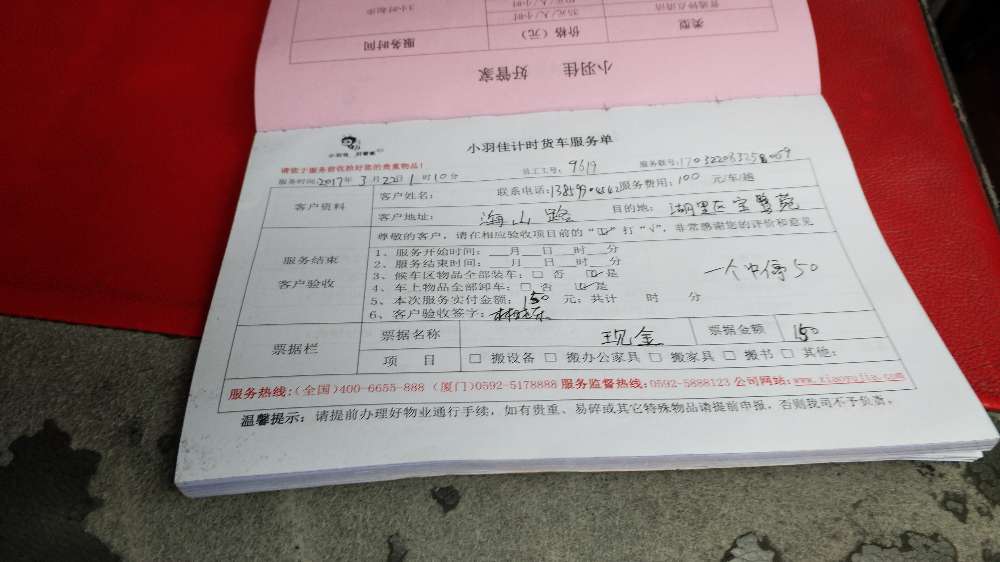 小羽佳 好管家
类型 价格(元) 服务时间
小羽佳 好管家
小羽佳计时货车服务单
请放于服务前收拾好您的贵重物品!
员工工号: 9619
服务时间:2017年3月22日1时10分
服务数号:
客户资料
客户姓名: 联系电话: 服务费用:100 元/车/趟
客户地址: 海山路 目的地: 湖里区
服务结束
客户验收
尊敬的客户,请在相应验收项目前的“□”打“√”,非常感谢您的评价和意见
1、服务开始时间:__月__日__时__分
2、服务结束时间:__月__日__时__分
3、候车区物品全部装车:□ 否 ☑是
4、车上物品全部卸车:□ 否 ☑是
5、本次服务实付金额:150 元;共计 时 分
一个中停50
6、客户验收签字:
票据栏
票据名称 现金 票据金额 150
项 目 □ 搬设备 □ 搬办公家具 □ 搬家具 □ 搬书 □ 其他:
服务热线:(全国)400-6655-888 (厦门)0592-5178888 服务监督热线:0592-5888123 公司网站:www.xiaoyujia.com
温馨提示:请提前办理好物业通行手续,如有贵重、易碎或其它特殊物品请提前申报,否则我司不予负责。